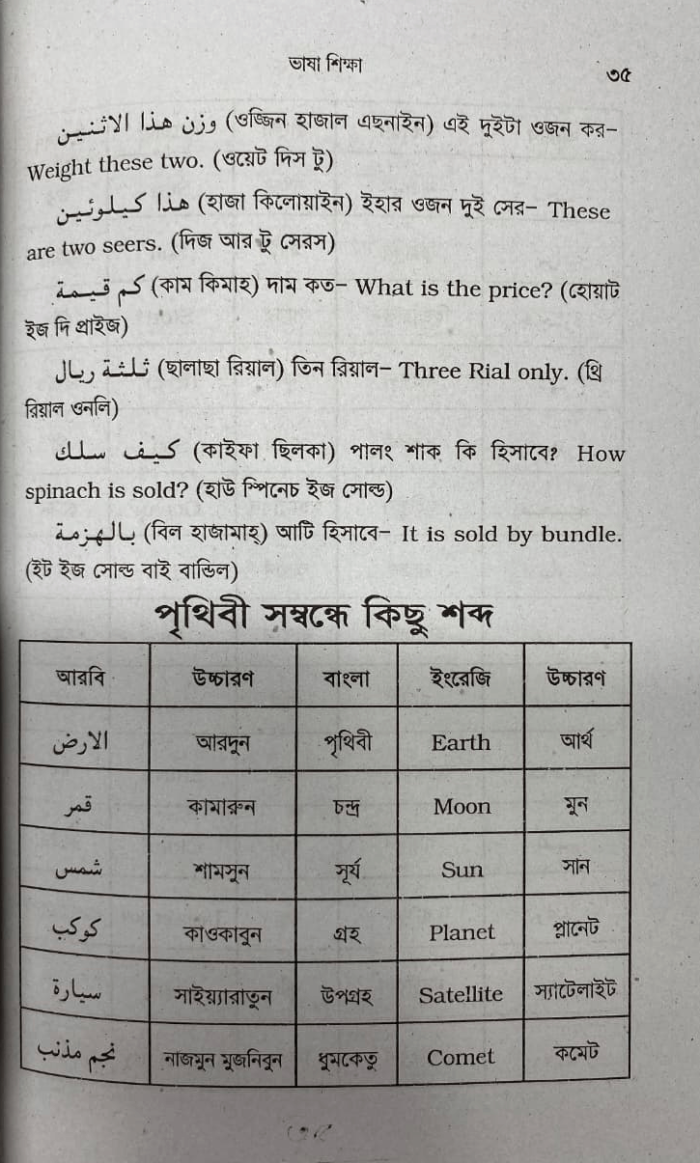 ভাষা শিক্ষা
৩৫
وزن هذا الاثنين (ওজ্জিন হাজাল এছনাইন) এই দুইটা ওজন কর–
Weight these two. (ওয়েট দিস টু)
هذا كيلوئين (হাজা কিলোয়াইন) ইহার ওজন দুই সের– These
are two seers. (দিজ আর টু সেরস)
كم قيمة (কাম কিমাহ) দাম কত– What is the price? (হোয়াট
ইজ দি প্রাইজ)
ثلثة ريال (ছালাছা রিয়াল) তিন রিয়াল– Three Rial only. (থ্রি
রিয়াল ওনলি)
كيف سلك (কাইফা ছিলকা) পালং শাক কি হিসাবে? How
spinach is sold? (হাউ স্পিনেচ ইজ সোল্ড)
بالهزمة (বিল হাজামাহ্) আটি হিসাবে– It is sold by bundle.
(ইট ইজ সোল্ড বাই বান্ডিল)
পৃথিবী সম্বন্ধে কিছু শব্দ
আরবি উচ্চারণ বাংলা ইংরেজি উচ্চারণ
الارض আরদুন পৃথিবী Earth আর্থ
قمر কামারুন চন্দ্র Moon মুন
شمس শামসুন সূর্য Sun সান
كوكب কাওকাবুন গ্রহ Planet প্লানেট
سيارة সাইয়্যারাতুন উপগ্রহ Satellite স্যাটেলাইট
نجم مذنب নাজমুন মুজনিবুন ধুমকেতু Comet কমেট